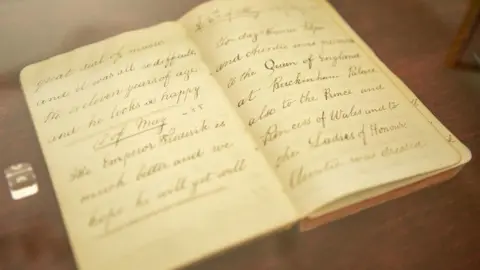 great deal of music
and it was all so difficult
He is eleven years of age
and he looks so happy
5 of May
The Emperor Fredrik is
much better and we
hope he will get well
5th of May
To day
and Auntie was presented
to the Queen of England
at Buckinham Palace
also to the Prince and
Princess of Wales and to
the Ladies of Honour
Auntie was dressed